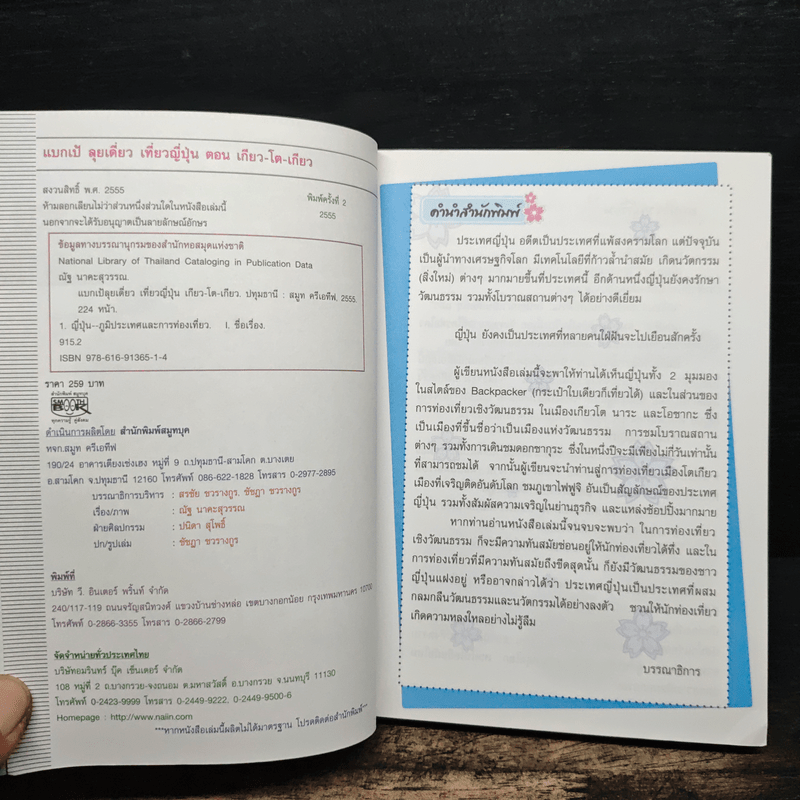 แบกเป้ ลุยเดี่ยว เที่ยวญี่ปุ่น ตอน เกียว-โต-เกียว
สงวนสิทธิ์ พ.ศ. 2555
พิมพ์ครั้งที่ 2
ห้ามลอกเลียนไม่ว่าส่วนหนึ่งส่วนใดในหนังสือเล่มนี้
2555
นอกจากจะได้รับอนุญาตเป็นลายลักษณ์อักษร
ข้อมูลทางบรรณานุกรมของสำนักหอสมุดแห่งชาติ
National Library of Thailand Cataloging in Publication Data
ณัฐ นาคะสุวรรณ.
แบกเป้ลุยเดี่ยว เที่ยวญี่ปุ่น เกียว-โต-เกียว. ปทุมธานี : สมูท ครีเอทีฟ, 2555.
224 หน้า.
1. ญี่ปุ่น--ภูมิประเทศและการท่องเที่ยว. I. ชื่อเรื่อง.
915.2
ISBN 978-616-91365-1-4
ราคา 259 บาท
สำนักพิมพ์ สมูทบุค
SMOOTH BOOK
ทุกความรู้ คู่สังคม
ดำเนินการผลิตโดย สำนักพิมพ์สมูทบุค
หจก.สมูท ครีเอทีฟ
190/24 อาคารเดียงเซ่งเฮง หมู่ที่ 9 ถ.ปทุมธานี-สามโคก ต.บางเตย
อ.สามโคก จ.ปทุมธานี 12160 โทรศัพท์ 086-622-1828 โทรสาร 0-2977-2895
บรรณาธิการบริหาร : สรชัย ชวรางกูร, ชัชฎา ชวรางกูร
เรื่อง/ภาพ : ณัฐ นาคะสุวรรณ
ฝ่ายศิลปกรรม : ปนิดา สุโพธิ์
ปก/รูปเล่ม : ชัชฎา ชวรางกูร
พิมพ์ที่
บริษัท วี. อินเตอร์ พริ้นท์ จำกัด
240/117-119 ถนนจรัญสนิทวงศ์ แขวงบ้านช่างหล่อ เขตบางกอกน้อย กรุงเทพมหานคร 10700
โทรศัพท์ 0-2866-3355 โทรสาร 0-2866-2799
จัดจำหน่ายทั่วประเทศไทย
บริษัทอมรินทร์ บุ๊ค เซ็นเตอร์ จำกัด
108 หมู่ที่ 2 ถ.บางกรวย-จงถนอม ต.มหาสวัสดิ์ อ.บางกรวย จ.นนทบุรี 11130
โทรศัพท์ 0-2423-9999 โทรสาร 0-2449-9222, 0-2449-9500-6
Homepage : http://www.naiin.com
***หากหนังสือเล่มนี้ผลิตไม่ได้มาตรฐาน โปรดติดต่อสำนักพิมพ์***
คำนำสำนักพิมพ์
ประเทศญี่ปุ่น อดีตเป็นประเทศที่แพ้สงครามโลก แต่ปัจจุบัน
เป็นผู้นำทางเศรษฐกิจโลก มีเทคโนโลยีที่ก้าวล้ำนำสมัย เกิดนวัตกรรม
(สิ่งใหม่) ต่างๆ มากมายขึ้นที่ประเทศนี้ อีกด้านหนึ่งญี่ปุ่นยังคงรักษา
วัฒนธรรม รวมทั้งโบราณสถานต่างๆ ได้อย่างดีเยี่ยม
ญี่ปุ่น ยังคงเป็นประเทศที่หลายคนใฝ่ฝันจะไปเยือนสักครั้ง
ผู้เขียนหนังสือเล่มนี้จะพาให้ท่านได้เห็นญี่ปุ่นทั้ง 2 มุมมอง
ในสไตล์ของ Backpacker (กระเป๋าใบเดียวก็เที่ยวได้) และในส่วนของ
การท่องเที่ยวเชิงวัฒนธรรม ในเมืองเกียวโต นาระ และโอซากะ ซึ่ง
เป็นเมืองที่ขึ้นชื่อว่าเป็นเมืองแห่งวัฒนธรรม การชมโบราณสถาน
ต่างๆ รวมทั้งการเดินชมดอกซากุระ ซึ่งในหนึ่งปีจะมีเพียงไม่กี่วันเท่านั้น
ที่สามารถชมได้ จากนั้นผู้เขียนจะนำท่านสู่การท่องเที่ยวเมืองโตเกียว
เมืองที่เจริญติดอันดับโลก ชมภูเขาไฟฟูจิ อันเป็นสัญลักษณ์ของประเทศ
ญี่ปุ่น รวมทั้งสัมผัสความเจริญในย่านธุรกิจ และแหล่งช้อปปิ้งมากมาย
หากท่านอ่านหนังสือเล่มนี้จนจบจะพบว่า ในการท่องเที่ยว
เชิงวัฒนธรรม ก็จะมีความทันสมัยซ่อนอยู่ให้นักท่องเที่ยวได้ทึ่ง และใน
การท่องเที่ยวที่มีความทันสมัยถึงขีดสุดนั้น ก็ยังมีวัฒนธรรมของชาว
ญี่ปุ่นแฝงอยู่ หรืออาจกล่าวได้ว่า ประเทศญี่ปุ่นเป็นประเทศที่ผสม
กลมกลืนวัฒนธรรมและนวัตกรรมได้อย่างลงตัว ชวนให้นักท่องเที่ยว
เกิดความหลงใหลอย่างไม่รู้ลืม
บรรณาธิการ